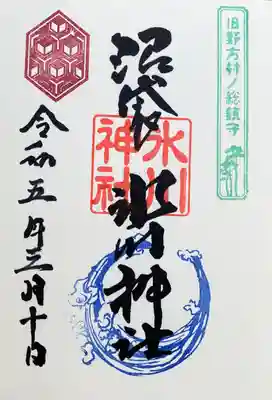 旧野方村ノ総鎮守
沼袋 氷川神社
氷川
神社
令和五年三月十日